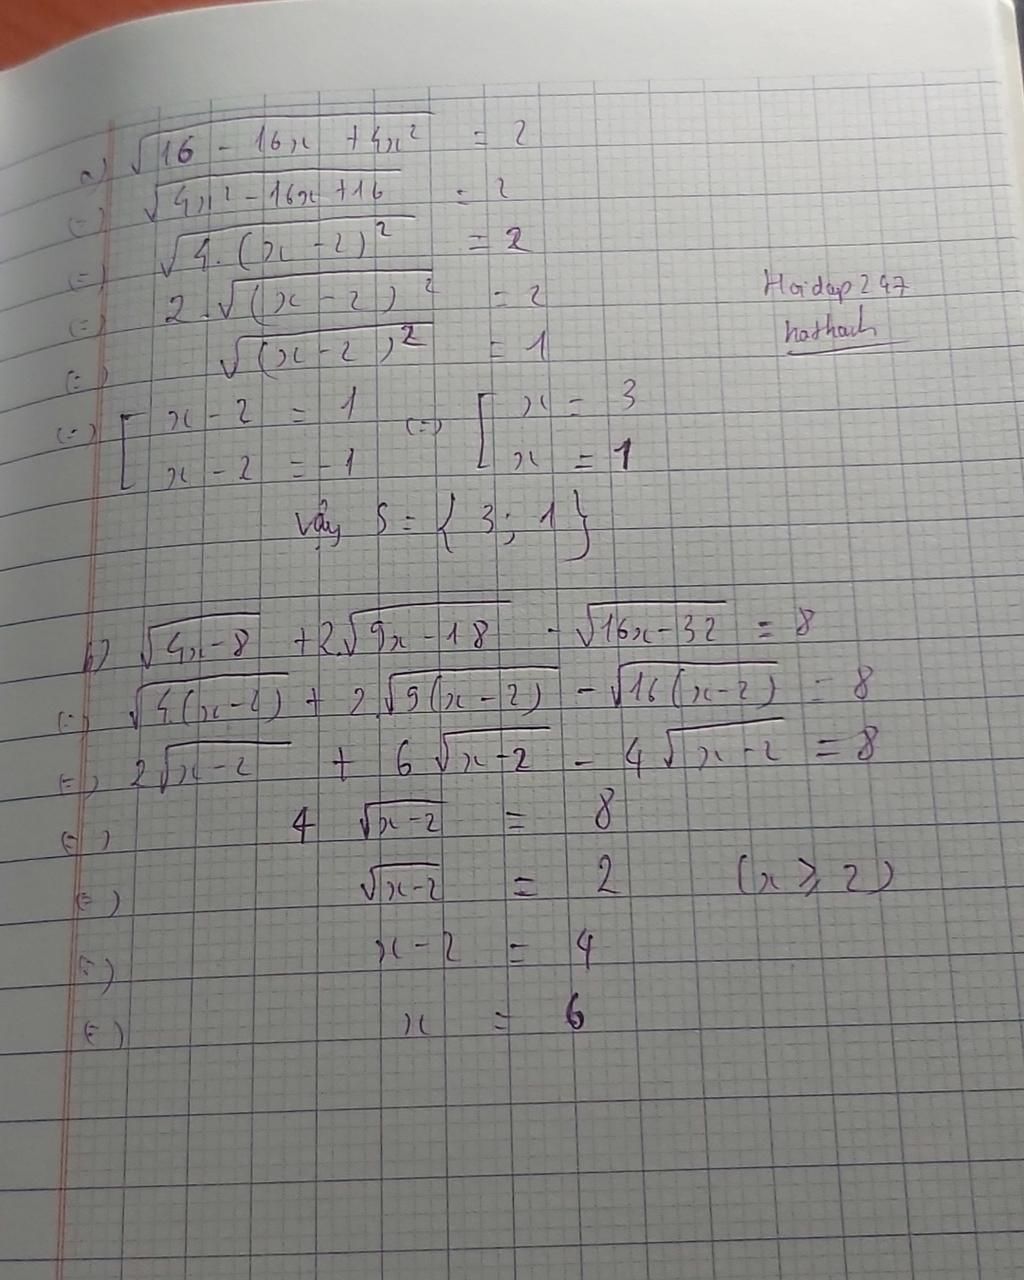 a) √(16 - 16x + 4x²) = 2
(=) √(4x² - 16x + 16) = 2
(=) √(4.(x - 2)²) = 2
(=) 2.√((x - 2)²) = 2
(=) √((x - 2)²) = 1
(=) [ x - 2 = 1 (=) [ x = 3
x - 2 = -1 x = 1
Vậy S = { 3; 1 }
Hoidap247
nathach
b) √(4x - 8) + 2.√(9x - 18) - √(16x - 32) = 8
(=) √(4(x - 2)) + 2.√(9(x - 2)) - √(16(x - 2)) = 8
(=) 2√(x - 2) + 6√(x - 2) - 4√(x - 2) = 8
(=) 4 √(x - 2) = 8
(=) √(x - 2) = 2 (x ⩾ 2)
(=) x - 2 = 4
(=) x = 6